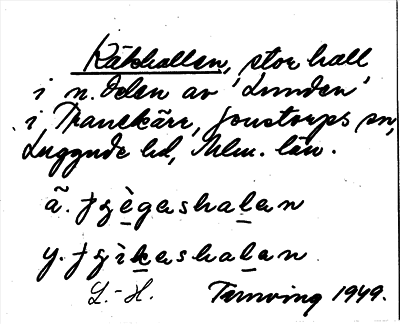 Käkhallen, stor hall
i n. delen av 'Lunden'
i Tranekärr, Jonstorps sn,
Luggude hd, Mlm. län.
ã. fgègashalan
y. fgikashalan
L.-H. 1949.